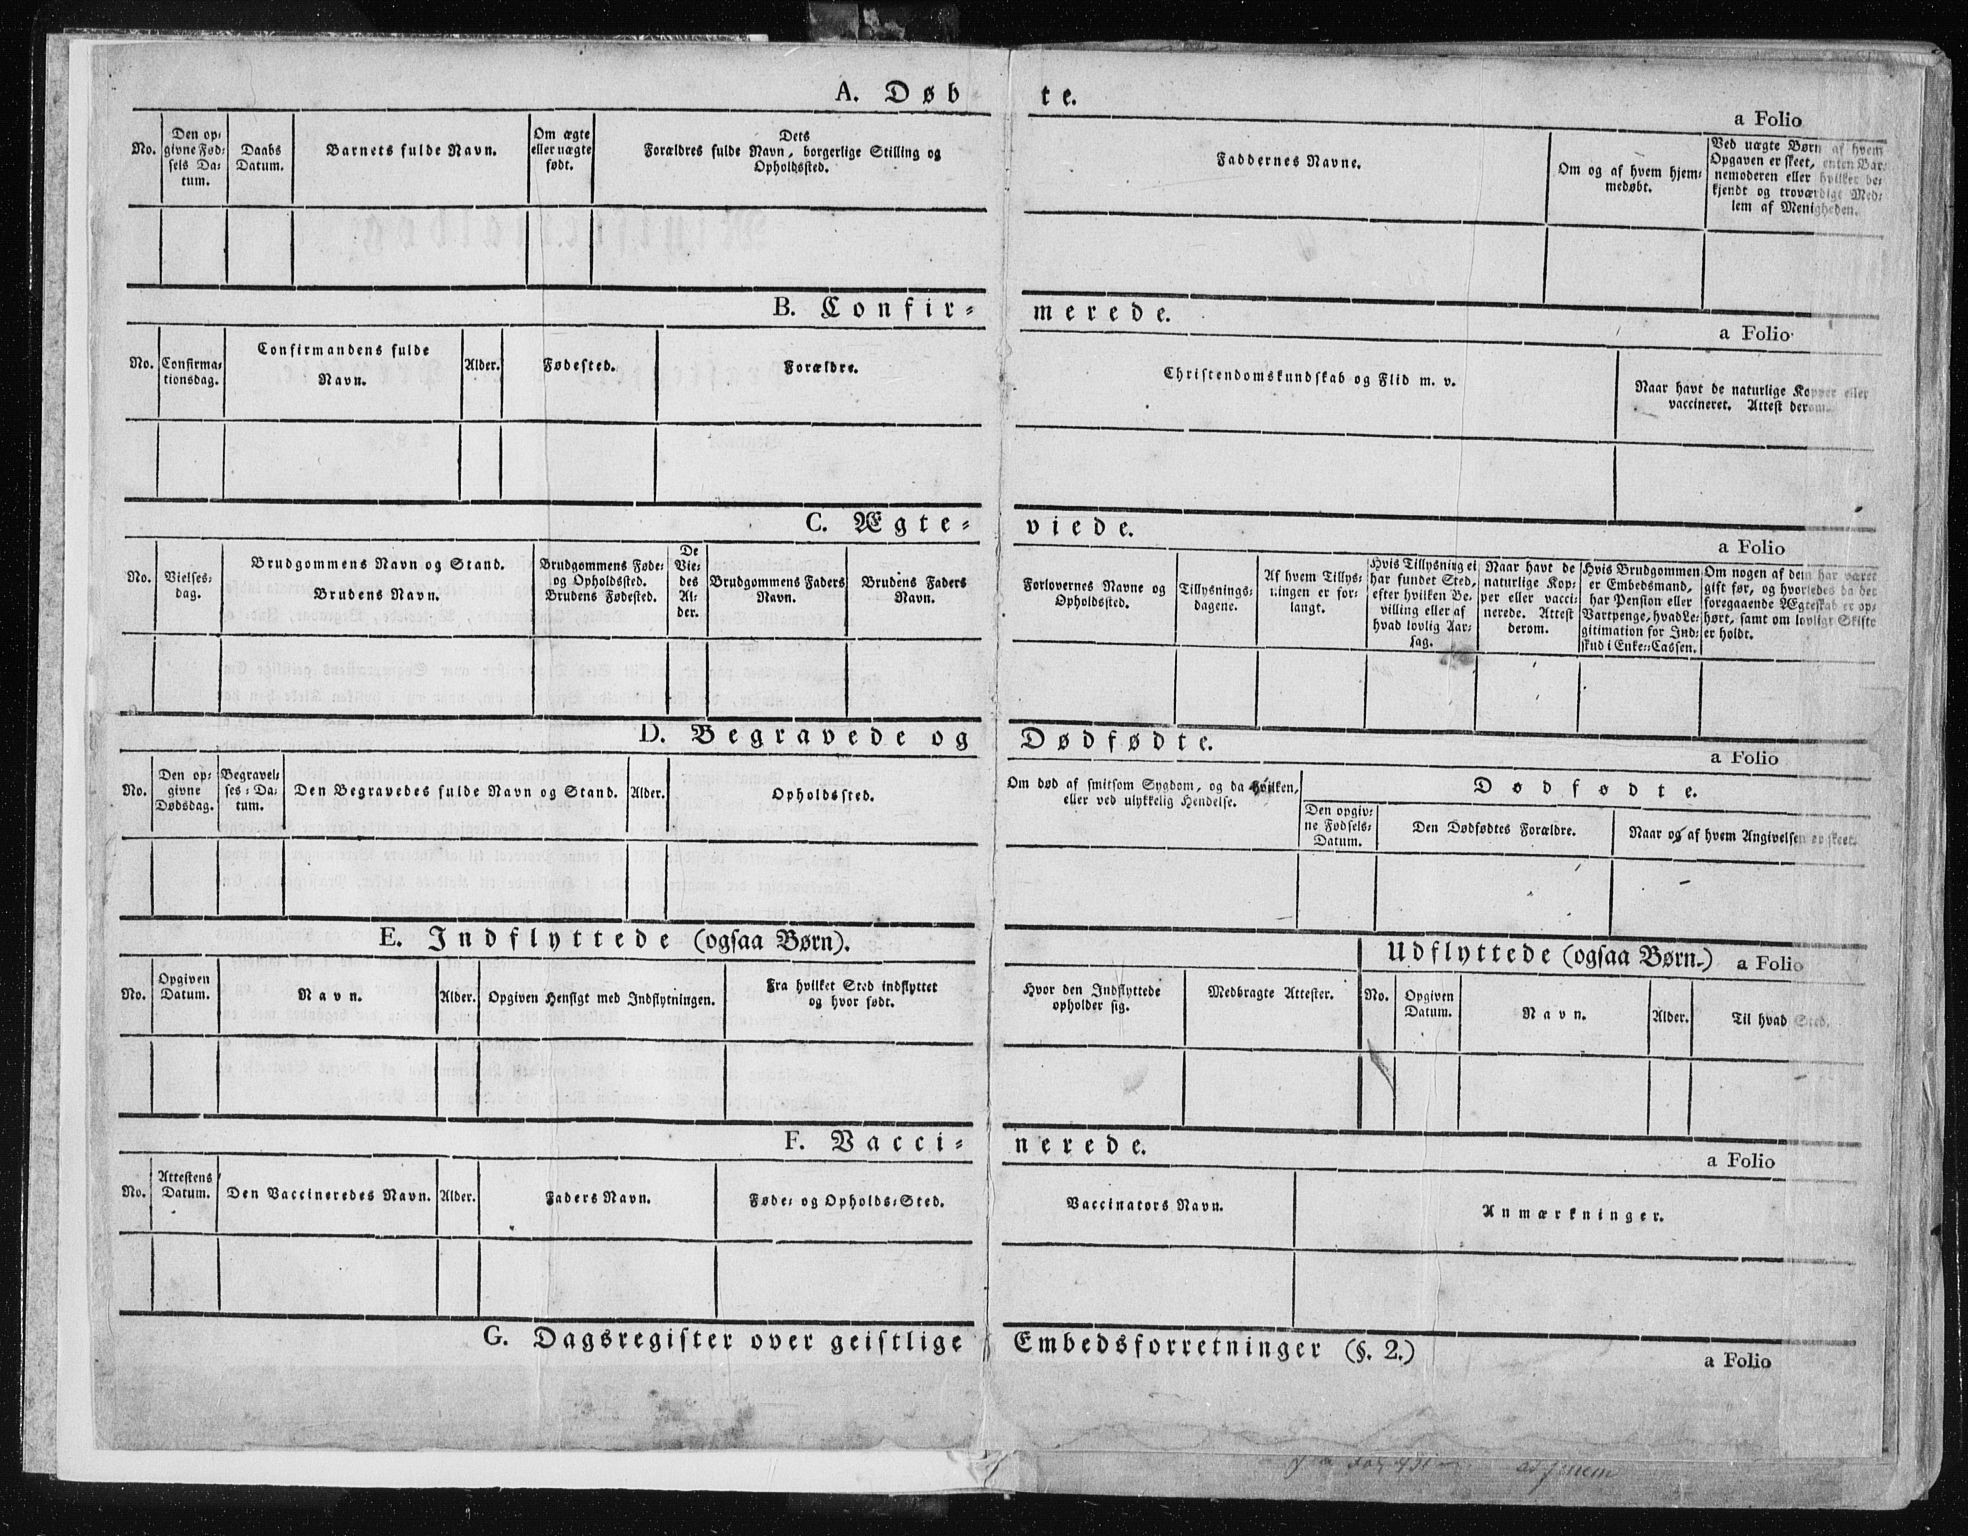 A. Døbte.
a Folio
No.
Den op-
givne Fød-
sels Da-
tum.
Daabs
Datum.
Barnets fulde Navn.
Om ægte
eller uægte
født.
Dets
Forældres fulde Navn, borgerlige Stilling og
Opholdssted.
Faddernes Navne.
Om og af hvem hjem-
medøbt.
Ved uægte Børn af hvem
Opgaven er skeet, enten Bar-
nemoderen eller hvilket be-
kjendt og troværdige Med-
lem af Menigheden.
B. Confir- merede.
a Folio
No.
Confirma-
tionsdag.
Confirmandens fulde
Navn.
Alder.
Fødested.
Forældre.
Christendomskundskab og Flid m. v.
Naar havt de naturlige Kopper eller
vaccineret. Attest derom.
C. Ægte- viede.
a Folio
No.
Vielses-
dag.
Brudgommens Navn og Stand.
Brudens Navn.
Brudgommens Føde-
og Opholdssted.
Brudens Fødested.
De
Vie-
des
Al-
der.
Brudgommens Faders
Navn.
Brudens Faders
Navn.
Forlovernes Navne og
Opholdssted.
Tillysnings-
dagene.
Af hvem Tillys-
ningen er for-
langt.
Hvis Tillysning ei
har fundet Sted,
efter hvilken Be-
villing eller af
hvad lovlig Aar-
sag.
Naar havt de
naturlige Kop-
per eller vacci-
nerede. Attest
derom.
Hvis Brudgommen
er Embedsmand,
har Pension eller
Vartpenge, hvad Le-
gitimation for Ind-
skud i Enke-Cassen.
Om nogen af dem har været
gift før, og hvorledes da det
foregaaende Ægteskab er op-
hørt, samt om lovligt Skifte
er holdt.
D. Begravede og Dødfødte.
a Folio
No.
Den op-
givne
Dødsdag.
Begravel-
ses-Da-
tum.
Den Begravedes fulde Navn og Stand.
Alder.
Opholdssted.
Om død af smitsom Sygdom, og da hvilken,
eller ved ulykkelig Hendelse.
Dødfødte.
Den opgiv-
ne Fødsels-
Datum.
Den Dødfødtes Forældre.
Naar og af hvem Angivelsen er skeet.
E. Indflyttede (ogsaa Børn).
Udflyttede (ogsaa Børn.)
a Folio
No.
Opgiven
Datum.
Navn.
Alder.
Opgiven Hensigt med Indflytningen.
Fra hvilket Sted indflyttet
og hvor født.
Hvor den Indflyttede
opholder sig.
Medbragte Attester.
No.
Opgiven
Datum.
Navn.
Alder.
Til hvad Sted.
F. Vacci- nerede.
a Folio
No.
Attestens
Datum.
Den Vaccineredes Navn.
Alder.
Faders Navn.
Føde- og Opholds-Sted.
Vaccinators Navn.
Anmærkninger.
G. Dagsregister over geistlige Embedsforretninger (§. 2.)
a Folio